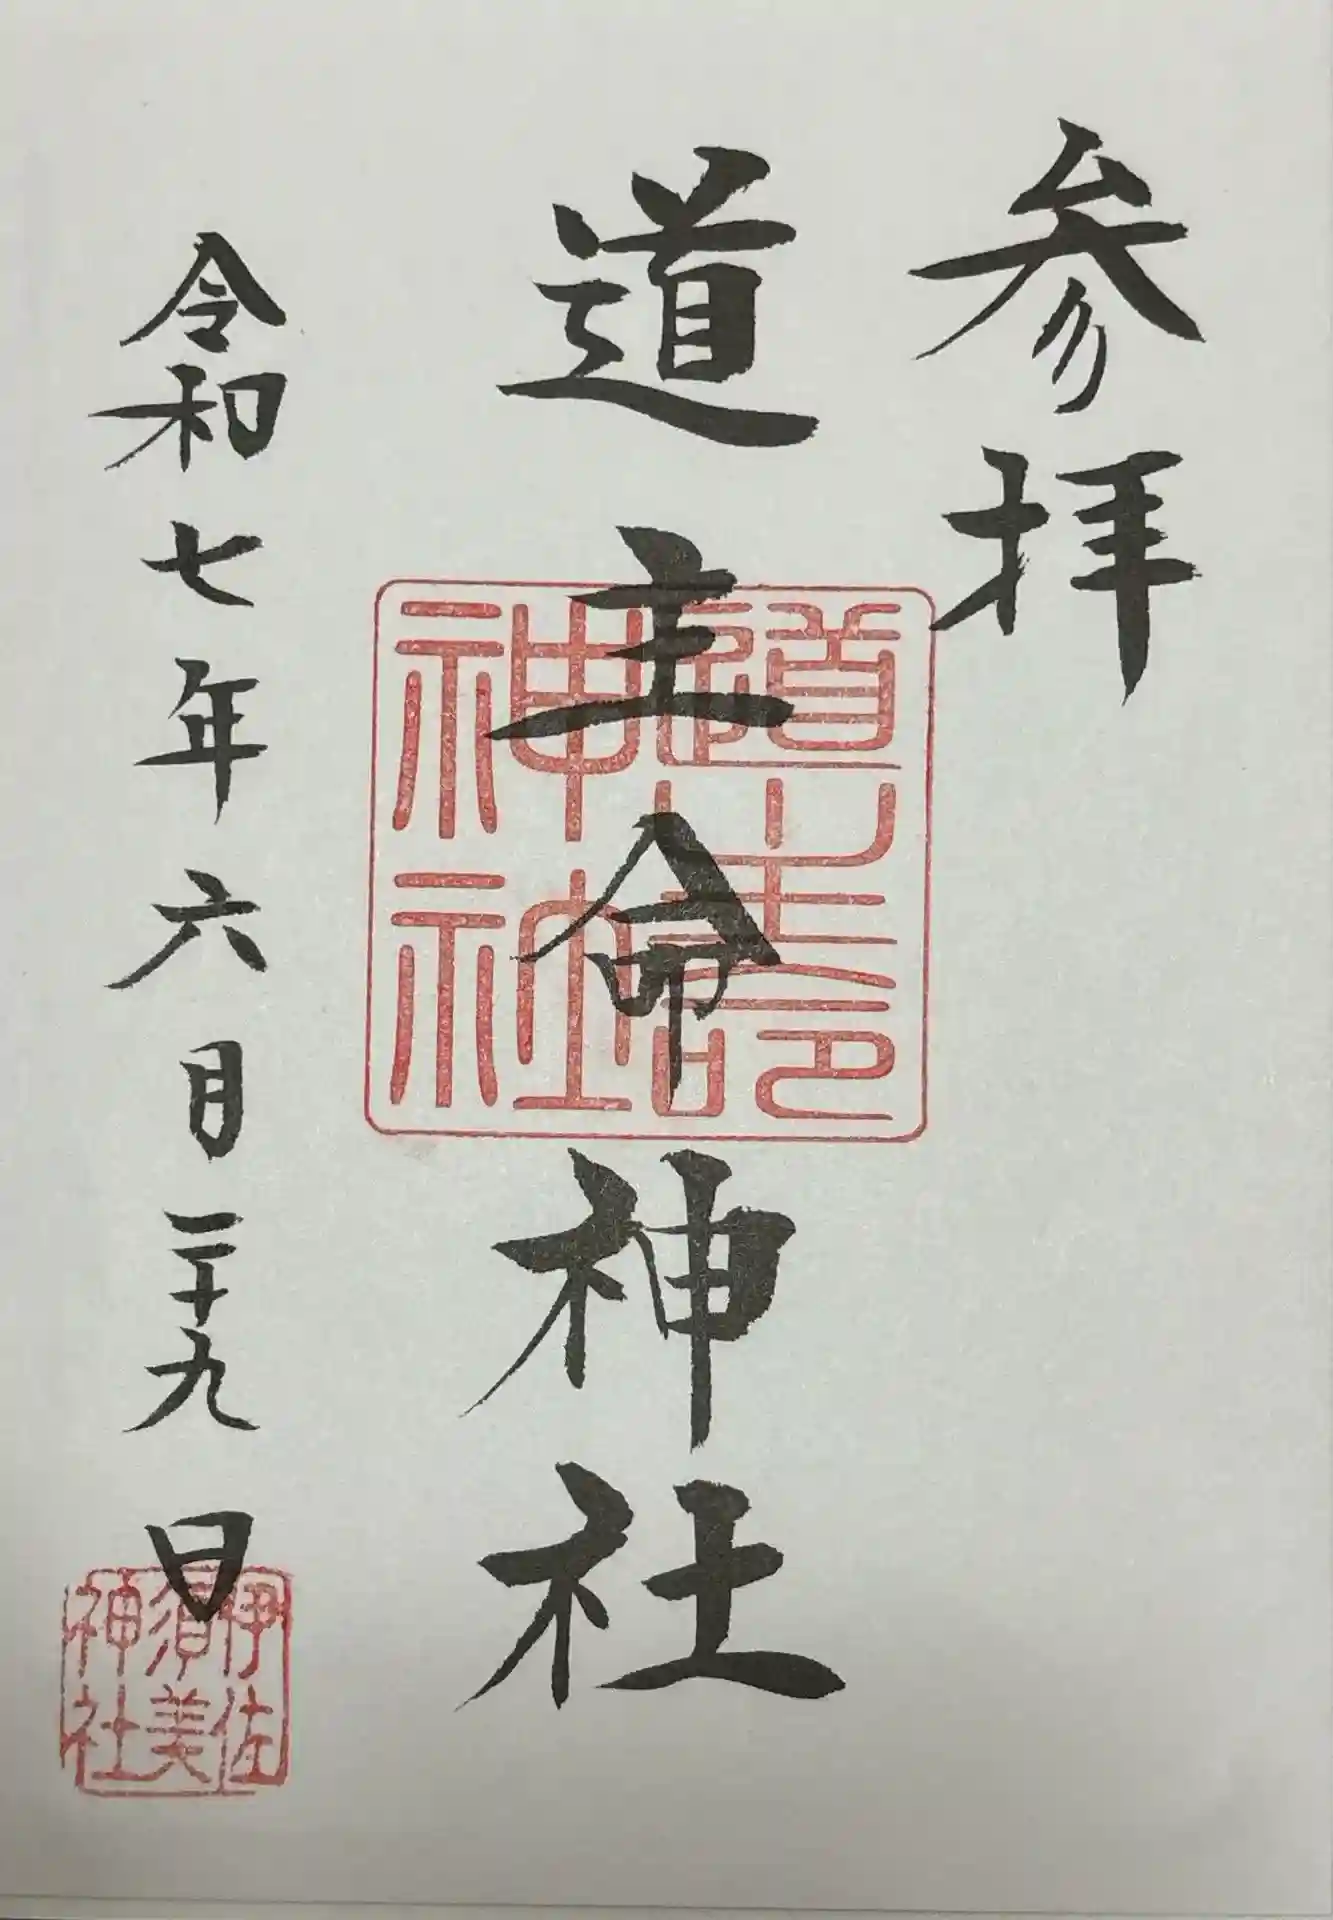 参拝
道主命神社
道主命神社
令和七年六月二十九日
伊佐須美神社